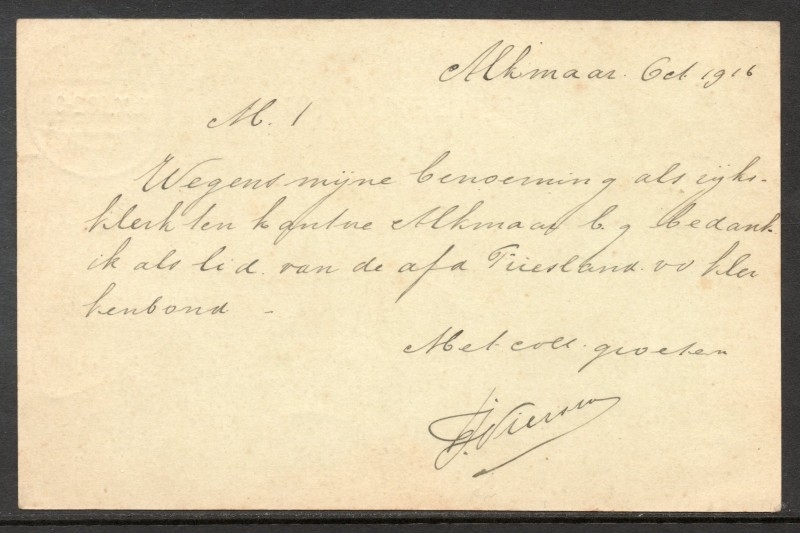 Alkmaar. Oct 1916
M. !
Wegens mijne benoeming als rijks-
klerk ten kantore Alkmaar b. g bedank
ik als lid. van de afd Friesland. vd kler
kenbond -
Met coll. groeten